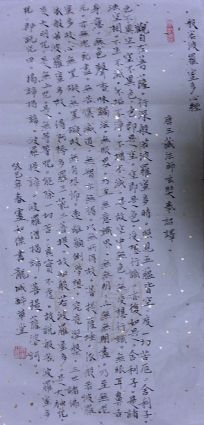 般若波羅蜜多心經
唐三藏法師玄奘奉詔譯
觀自在菩薩行深般若波羅蜜多時照見五蘊皆空度一切苦厄舍利子
色不異空空不異色色即是空空即是色受想行識亦復如是舍利子是諸
法空相不生不滅不垢不淨不增不減是故空中無色無受想行識無眼耳鼻舌
身意無色聲香味觸法無眼界乃至無意識界無無明亦無無明盡乃至無老
死亦無老死盡無苦集滅道無智亦無得以無所得故菩提薩埵依般若波羅
蜜多故心無罣礙無罣礙故無有恐怖遠離顛倒夢想究竟涅槃三世諸佛
依般若波羅蜜多故得阿耨多羅三藐三菩提故知般若波羅蜜多是大神咒
是大明咒是無上咒是無等等咒能除一切苦真實不虛故說般若波羅蜜多
咒即說咒曰揭諦揭諦波羅揭諦波羅僧揭諦菩提薩婆訶
癸巳年春 書